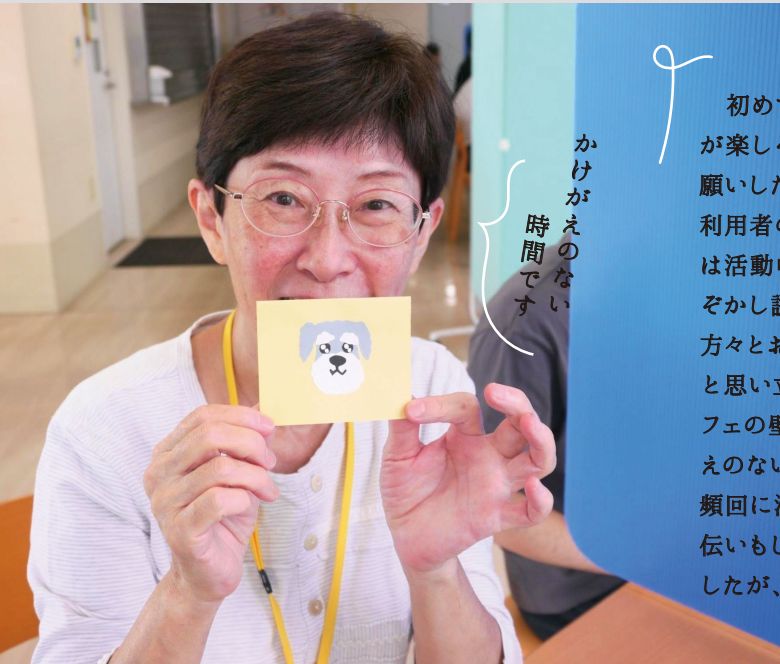 かけがえのない
時間です
初め
が楽し
願いした
利用者の
は活動
ぞかし
方々とお
と思い
フェの
えのない
頻回に
伝いもし
したが、